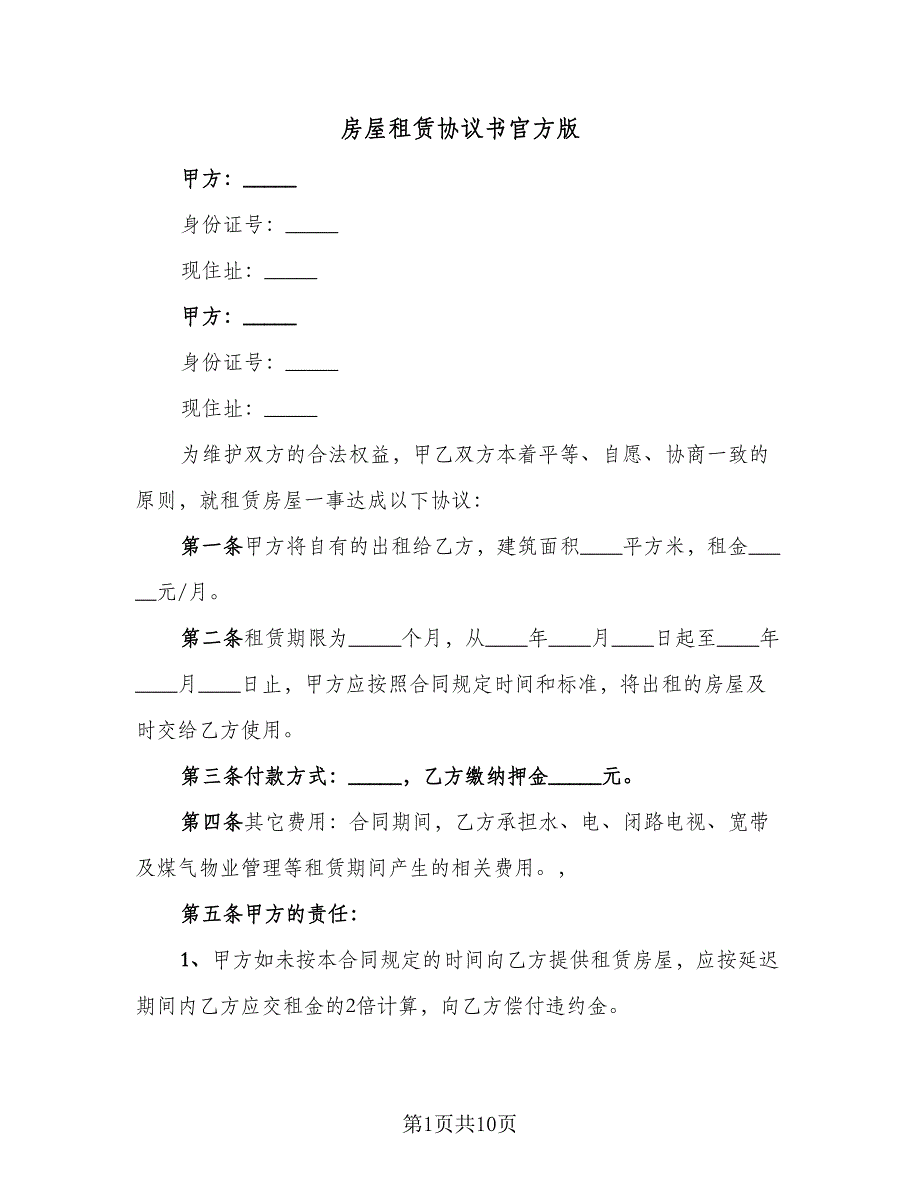 房屋租赁协议书官方版
甲方：_____
身份证号：_____
现住址：_____
甲方：_____
身份证号：_____
现住址：_____
为维护双方的合法权益，甲乙双方本着平等、自愿、协商一致的
原则，就租赁房屋一事达成以下协议：
第一条甲方将自有的出租给乙方，建筑面积____平方米，租金___
__元/月。
第二条租赁期限为_____个月，从____年____月____日起至____年
____月____日止，甲方应按照合同规定时间和标准，将出租的房屋及
时交给乙方使用。
第三条付款方式：_____，乙方缴纳押金_____元。
第四条其它费用：合同期间，乙方承担水、电、闭路电视、宽带
及煤气物业管理等租赁期间产生的相关费用。，
第五条甲方的责任：
1、甲方如未按本合同规定的时间向乙方提供租赁房屋，应按延迟
期间内乙方应交租金的2倍计算，向乙方偿付违约金。
第1页共10页